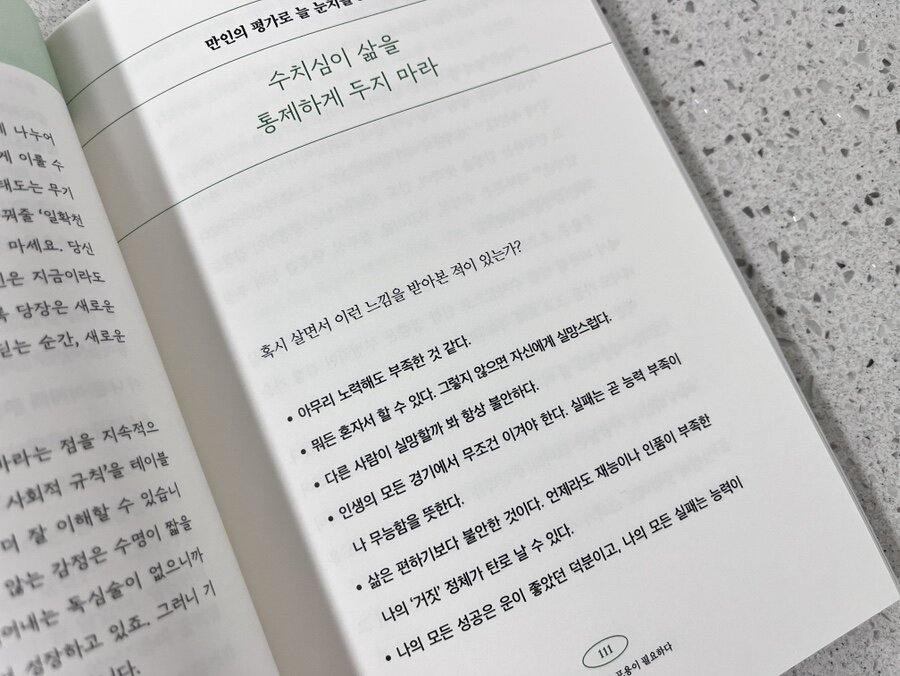 게 나누어
게 이룰 수
태도는 무기
꿔줄 ‘일확천
마세요. 당신
은 지금이라도
당장은 새로운
는 순간, 새로운
바라는 점을 지속적으
사회적 규칙’을 테이블
며 잘 이해할 수 있습니
않는 감정은 수명이 짧을
어내는 독심술이 없으니까
성장하고 있죠. 그러니 기
만인의 평가로 늘 눈치를
수치심이 삶을
통제하게 두지 마라
혹시 살면서 이런 느낌을 받아본 적이 있는가?
• 아무리 노력해도 부족한 것 같다.
• 뭐든 혼자서 할 수 있다. 그렇지 않으면 자신에게 실망스럽다.
• 다른 사람이 실망할까 봐 항상 불안하다.
• 인생의 모든 경기에서 무조건 이겨야 한다. 실패는 곧 능력 부족이
나 무능함을 뜻한다.
• 삶은 편하기보다 불안한 것이다. 언제라도 재능이나 인품이 부족한
나의 ‘거짓’ 정체가 탄로 날 수 있다.
• 나의 모든 성공은 운이 좋았던 덕분이고, 나의 모든 실패는 능력이
111
포용이 필요하다